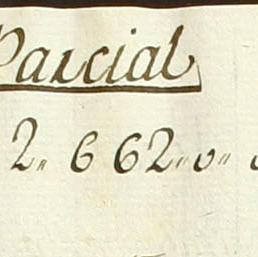 Parcial
2„ 662„0„